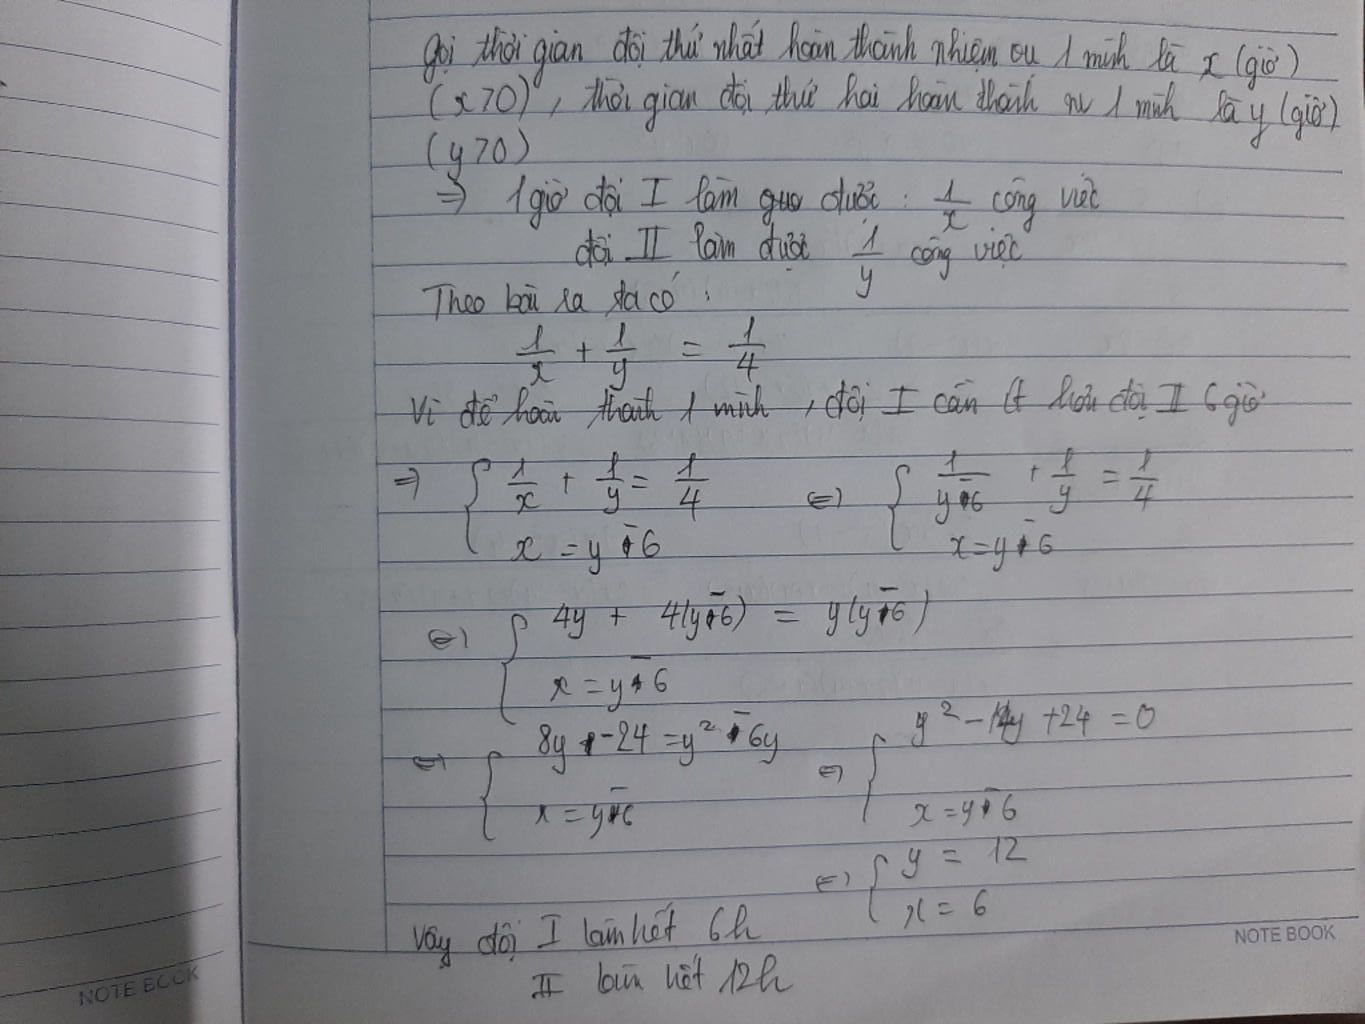 gọi thời gian đội thứ nhất hoàn thành nhiệm vụ 1 mình là x (giờ)
(x>0), thời gian đội thứ hai hoàn thành nv 1 mình là y (giờ)
(y>0)
=> 1 giờ đội I làm được : 1/x công việc
đội II làm được 1/y công việc
Theo bài ra ta có :
1/x + 1/y = 1/4
Vì để hoàn thành 1 mình, đội I cần ít hơn đội II 6 giờ
=> { 1/x + 1/y = 1/4 <=> { 1/(y-6) + 1/y = 1/4
x = y - 6 x = y - 6
<=> { 4y + 4(y-6) = y(y-6)
x = y - 6
<=> { 8y - 24 = y² - 6y <=> { y² - 14y + 24 = 0
x = y - 6 x = y - 6
<=> { y = 12
x = 6
Vậy đội I làm hết 6h
II làm hết 12h
NOTE BOOK
NOTE BOOK